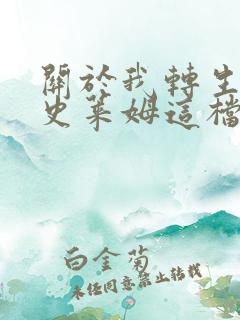 關於我轉生
史萊姆這檔
白金菊
未經同意禁止轉載